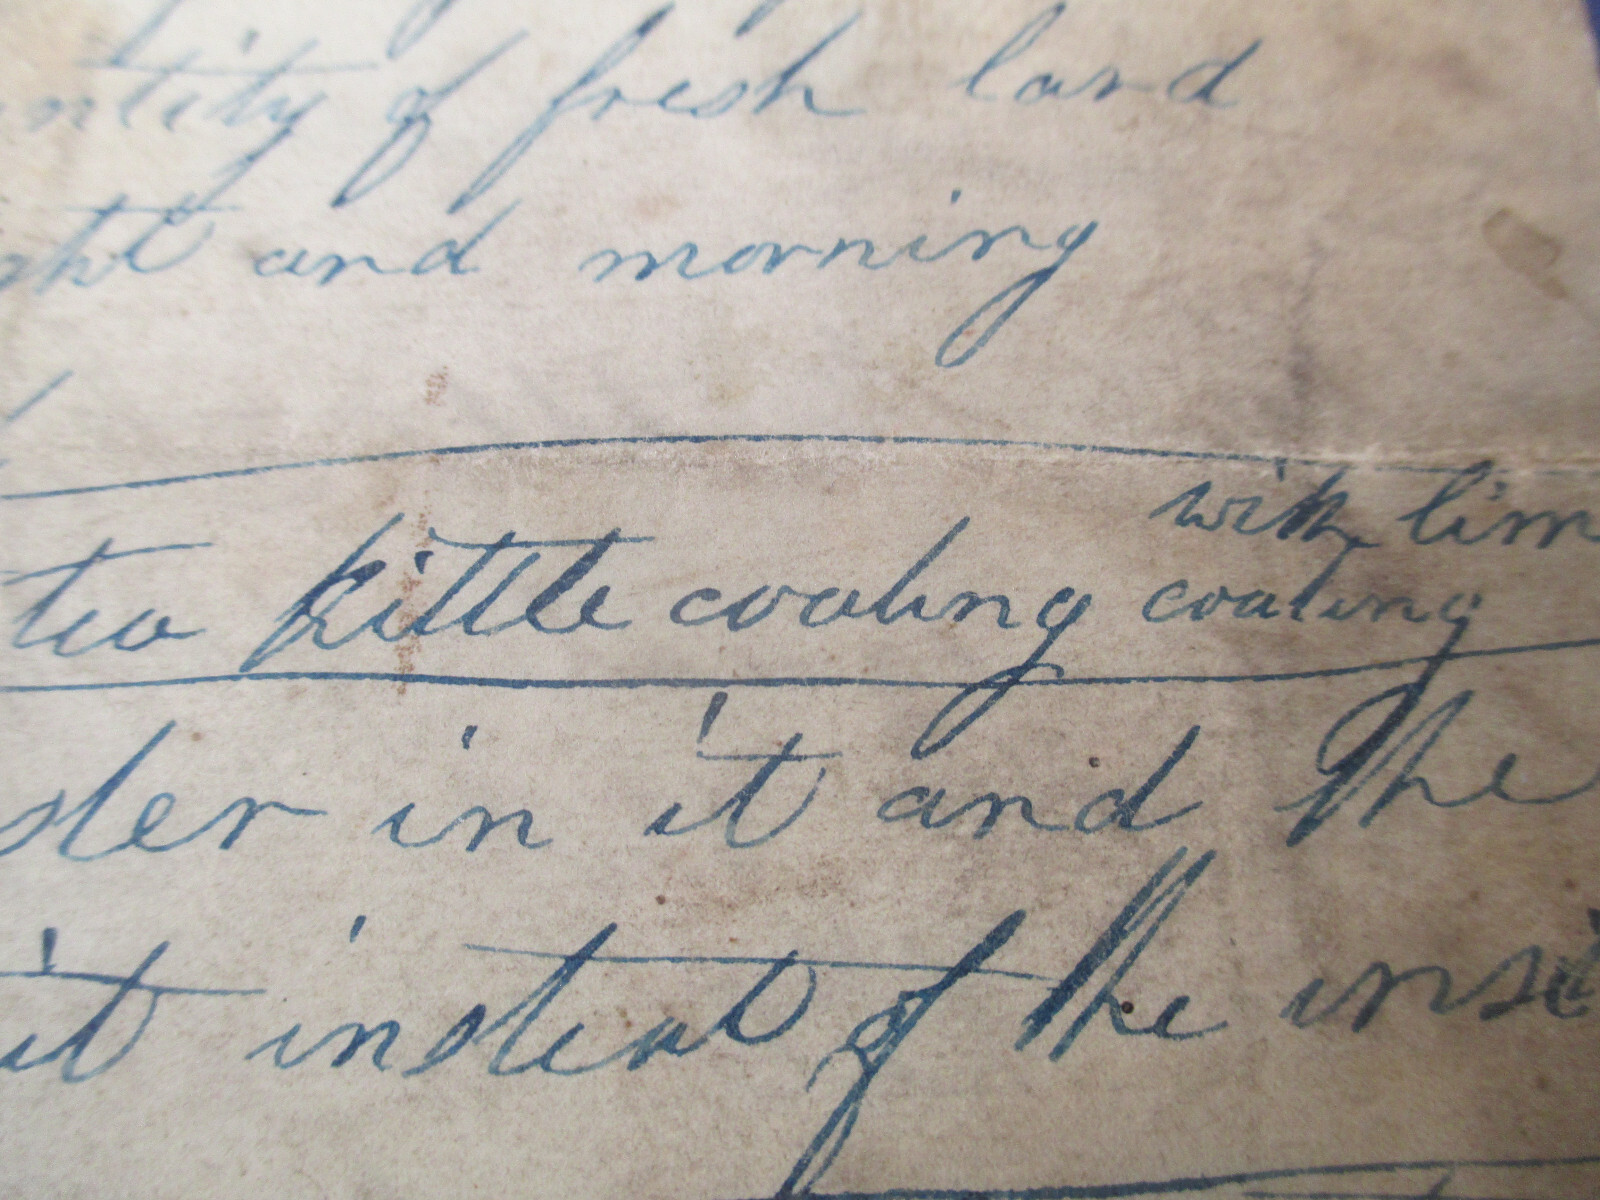 ntity of fresh lard
ght and morning
with lim
tea kittle cooling coating
ster in it and the
it insteat of the insi